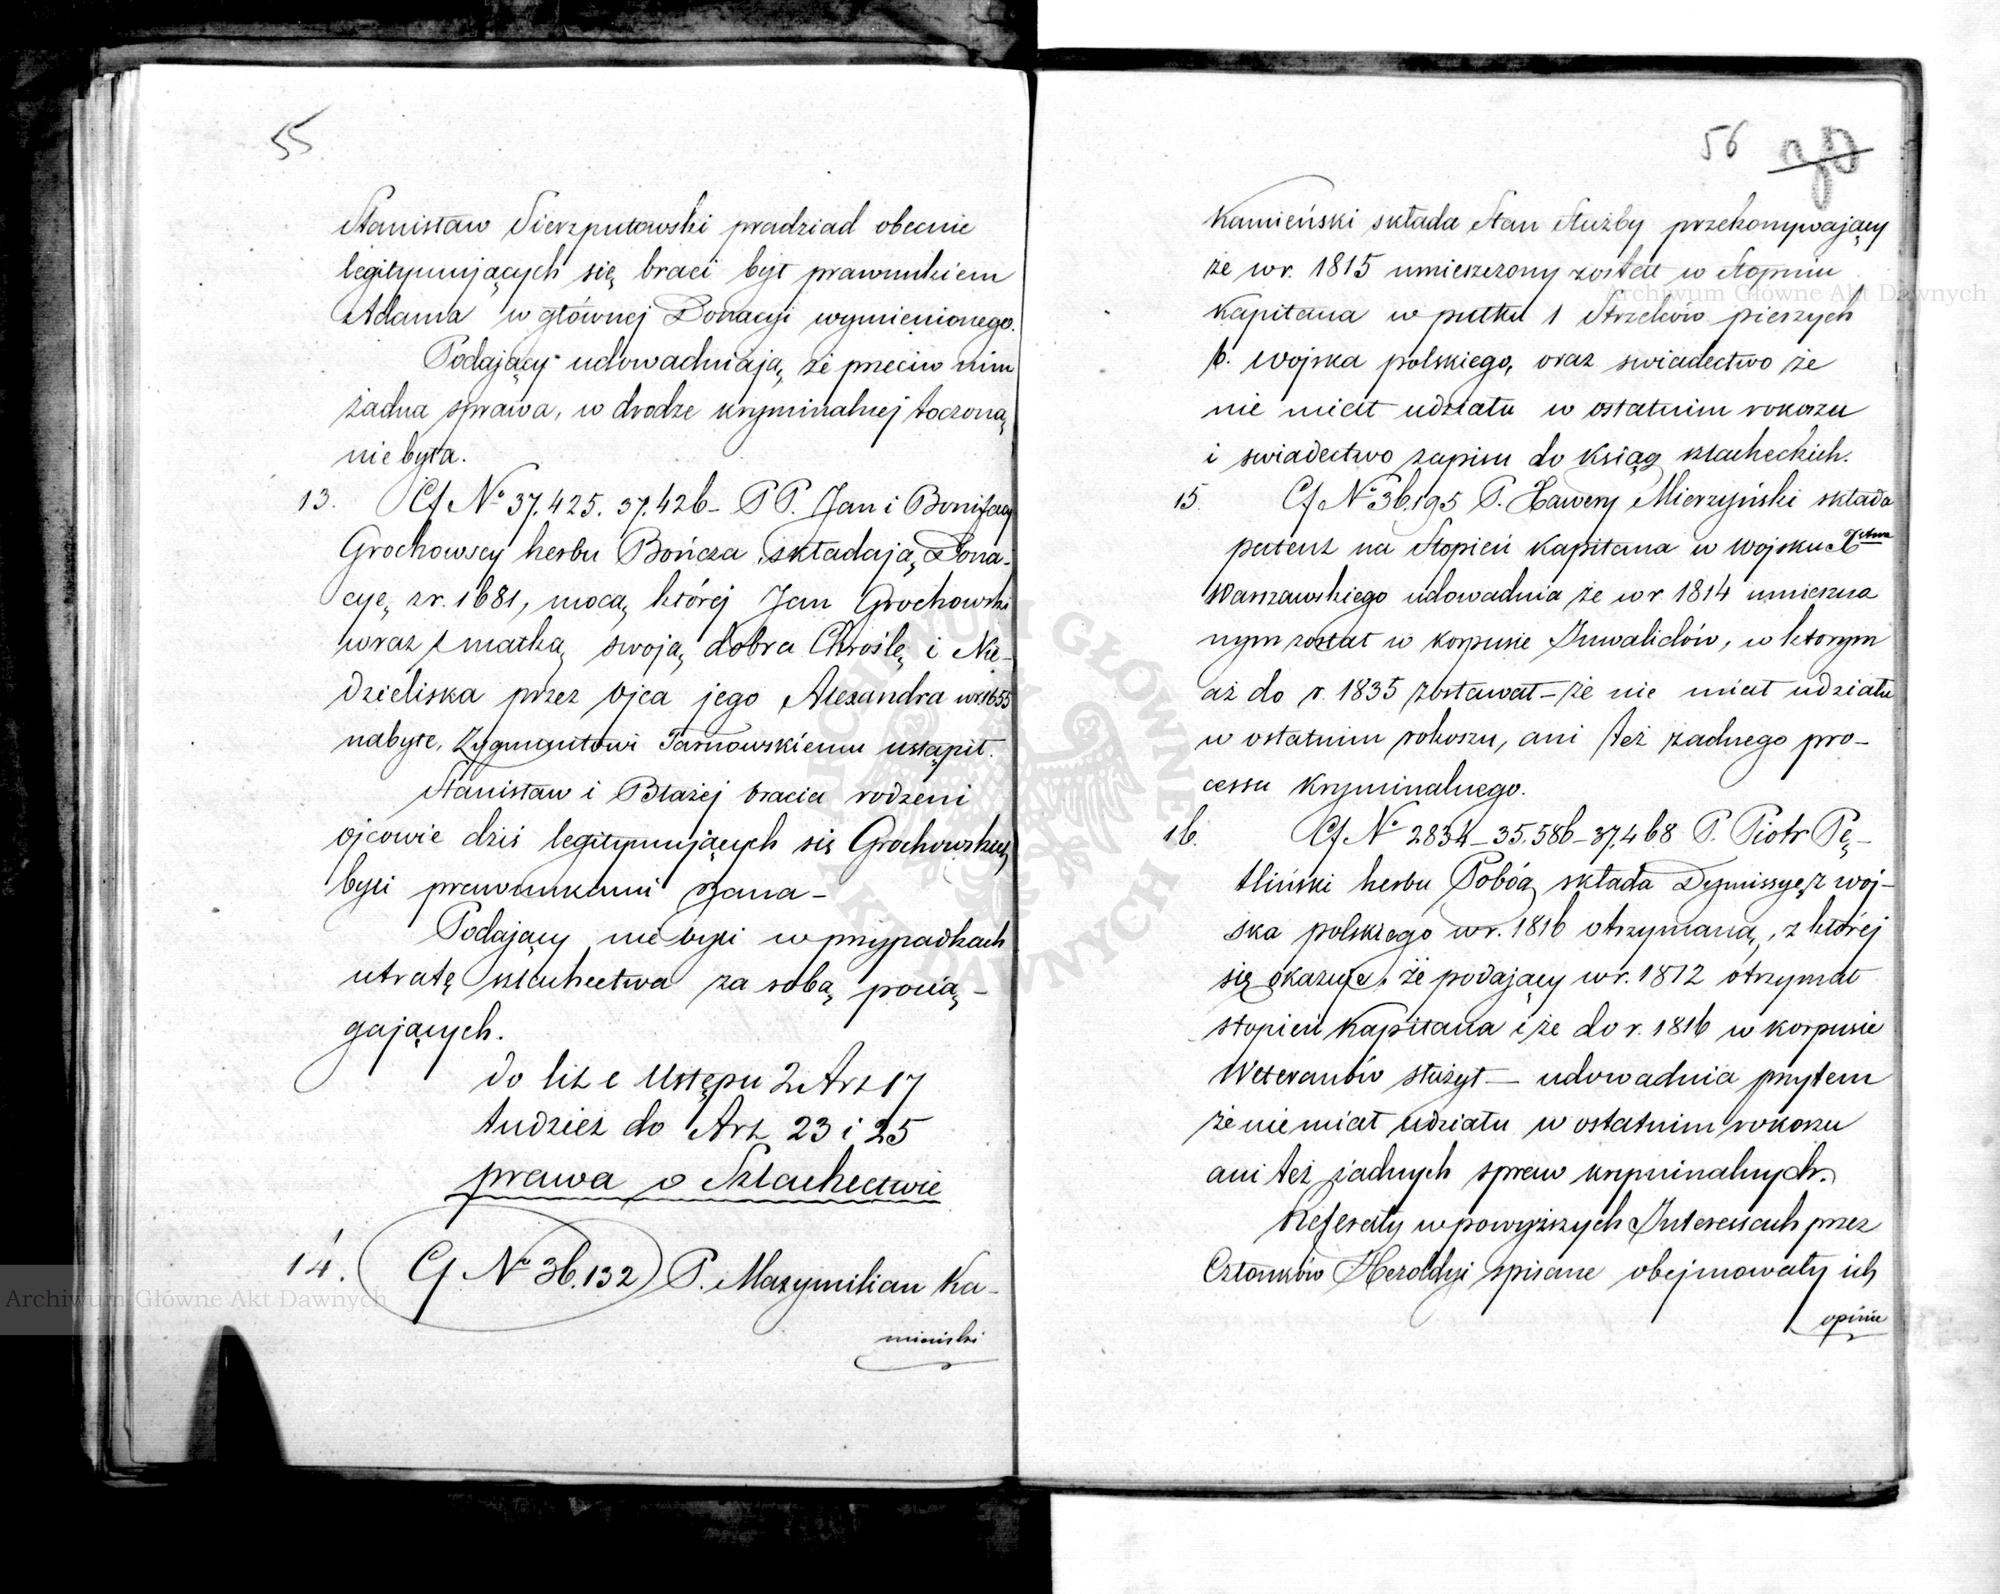 55
Stanisław Sierzputowski pradziad obecnie
legitymujących się braci był prawnukiem
Adama w głównej Donacyi wymienionego.
Podający udowadniają, że przeciw nim
żadna sprawa, w drodze kryminalnej toczoną
nie była.
13. Cf No 37.425. 37.426 – PP. Jan i Bonifacy
Grochowscy herbu Bończa składają Dona-
cyę z r. 1681, mocą której Jan Grochowski
wraz z matką swoją dobra Chroślę i Nie-
dzieliska przez ojca jego Alexandra w r. 1655
nabyte, Zygmuntowi Tarnowskiemu ustąpił.
Stanisław i Błażej bracia rodzeni
ojcowie dziś legitymujących się Grochowskich
byli prawnukami Jana –
Podający nie byli w przypadkach
utratę szlachectwa za sobą pocią-
gających.
do lit c Ustępu 2 Art 17
tudzież do Art 23 i 25
prawa o Szlachectwie
14. Cf No 36.132 P. Maxymilian Ka-
mieński
56
Kamieński składa Stan Służby przekonywający
że w r. 1815 umieszczony został w Stopniu
Kapitana w pułku 1 Strzelców pieszych
b. Wojska polskiego, oraz swiadectwo że
nie miał udziału w ostatnim rokoszu
i swiadectwo zapisu do Ksiąg szlacheckich.
15. Cf No 36.195 P. Xawery Mierzyński składa
patent na Stopień Kapitana w Wojsku Xstwa
Warszawskiego udowadnia że w r. 1814 umieszczo
nym został w Korpusie Inwalidów, w ktorym
aż do r. 1835 zostawał – że nie miał udziału
w ostatnim rokoszu, ani też żadnego pro-
cessu kryminalnego.
16. Cf No 2834 – 35.586 – 37.468 P. Piotr Pę-
tliński herbu Pobóg składa Dymissyę z woj-
ska polskiego w r. 1816 otrzymaną, z której
się okazuje, że podający w r. 1812 otrzymał
stopień Kapitana i że do r. 1816 w korpusie
Weteranów służył – udowadnia przytem
że nie miał udziału w ostatnim rokoszu
ani też żadnych spraw kryminalnych.
Referaty w powyższych Interesach przez
Członków Heroldyi spisane obejmowały ich
opinie
Archiwum Główne Akt Dawnych
Archiwum Główne Akt Dawnych
ARCHIWUM GŁÓWNE AKT DAWNYCH